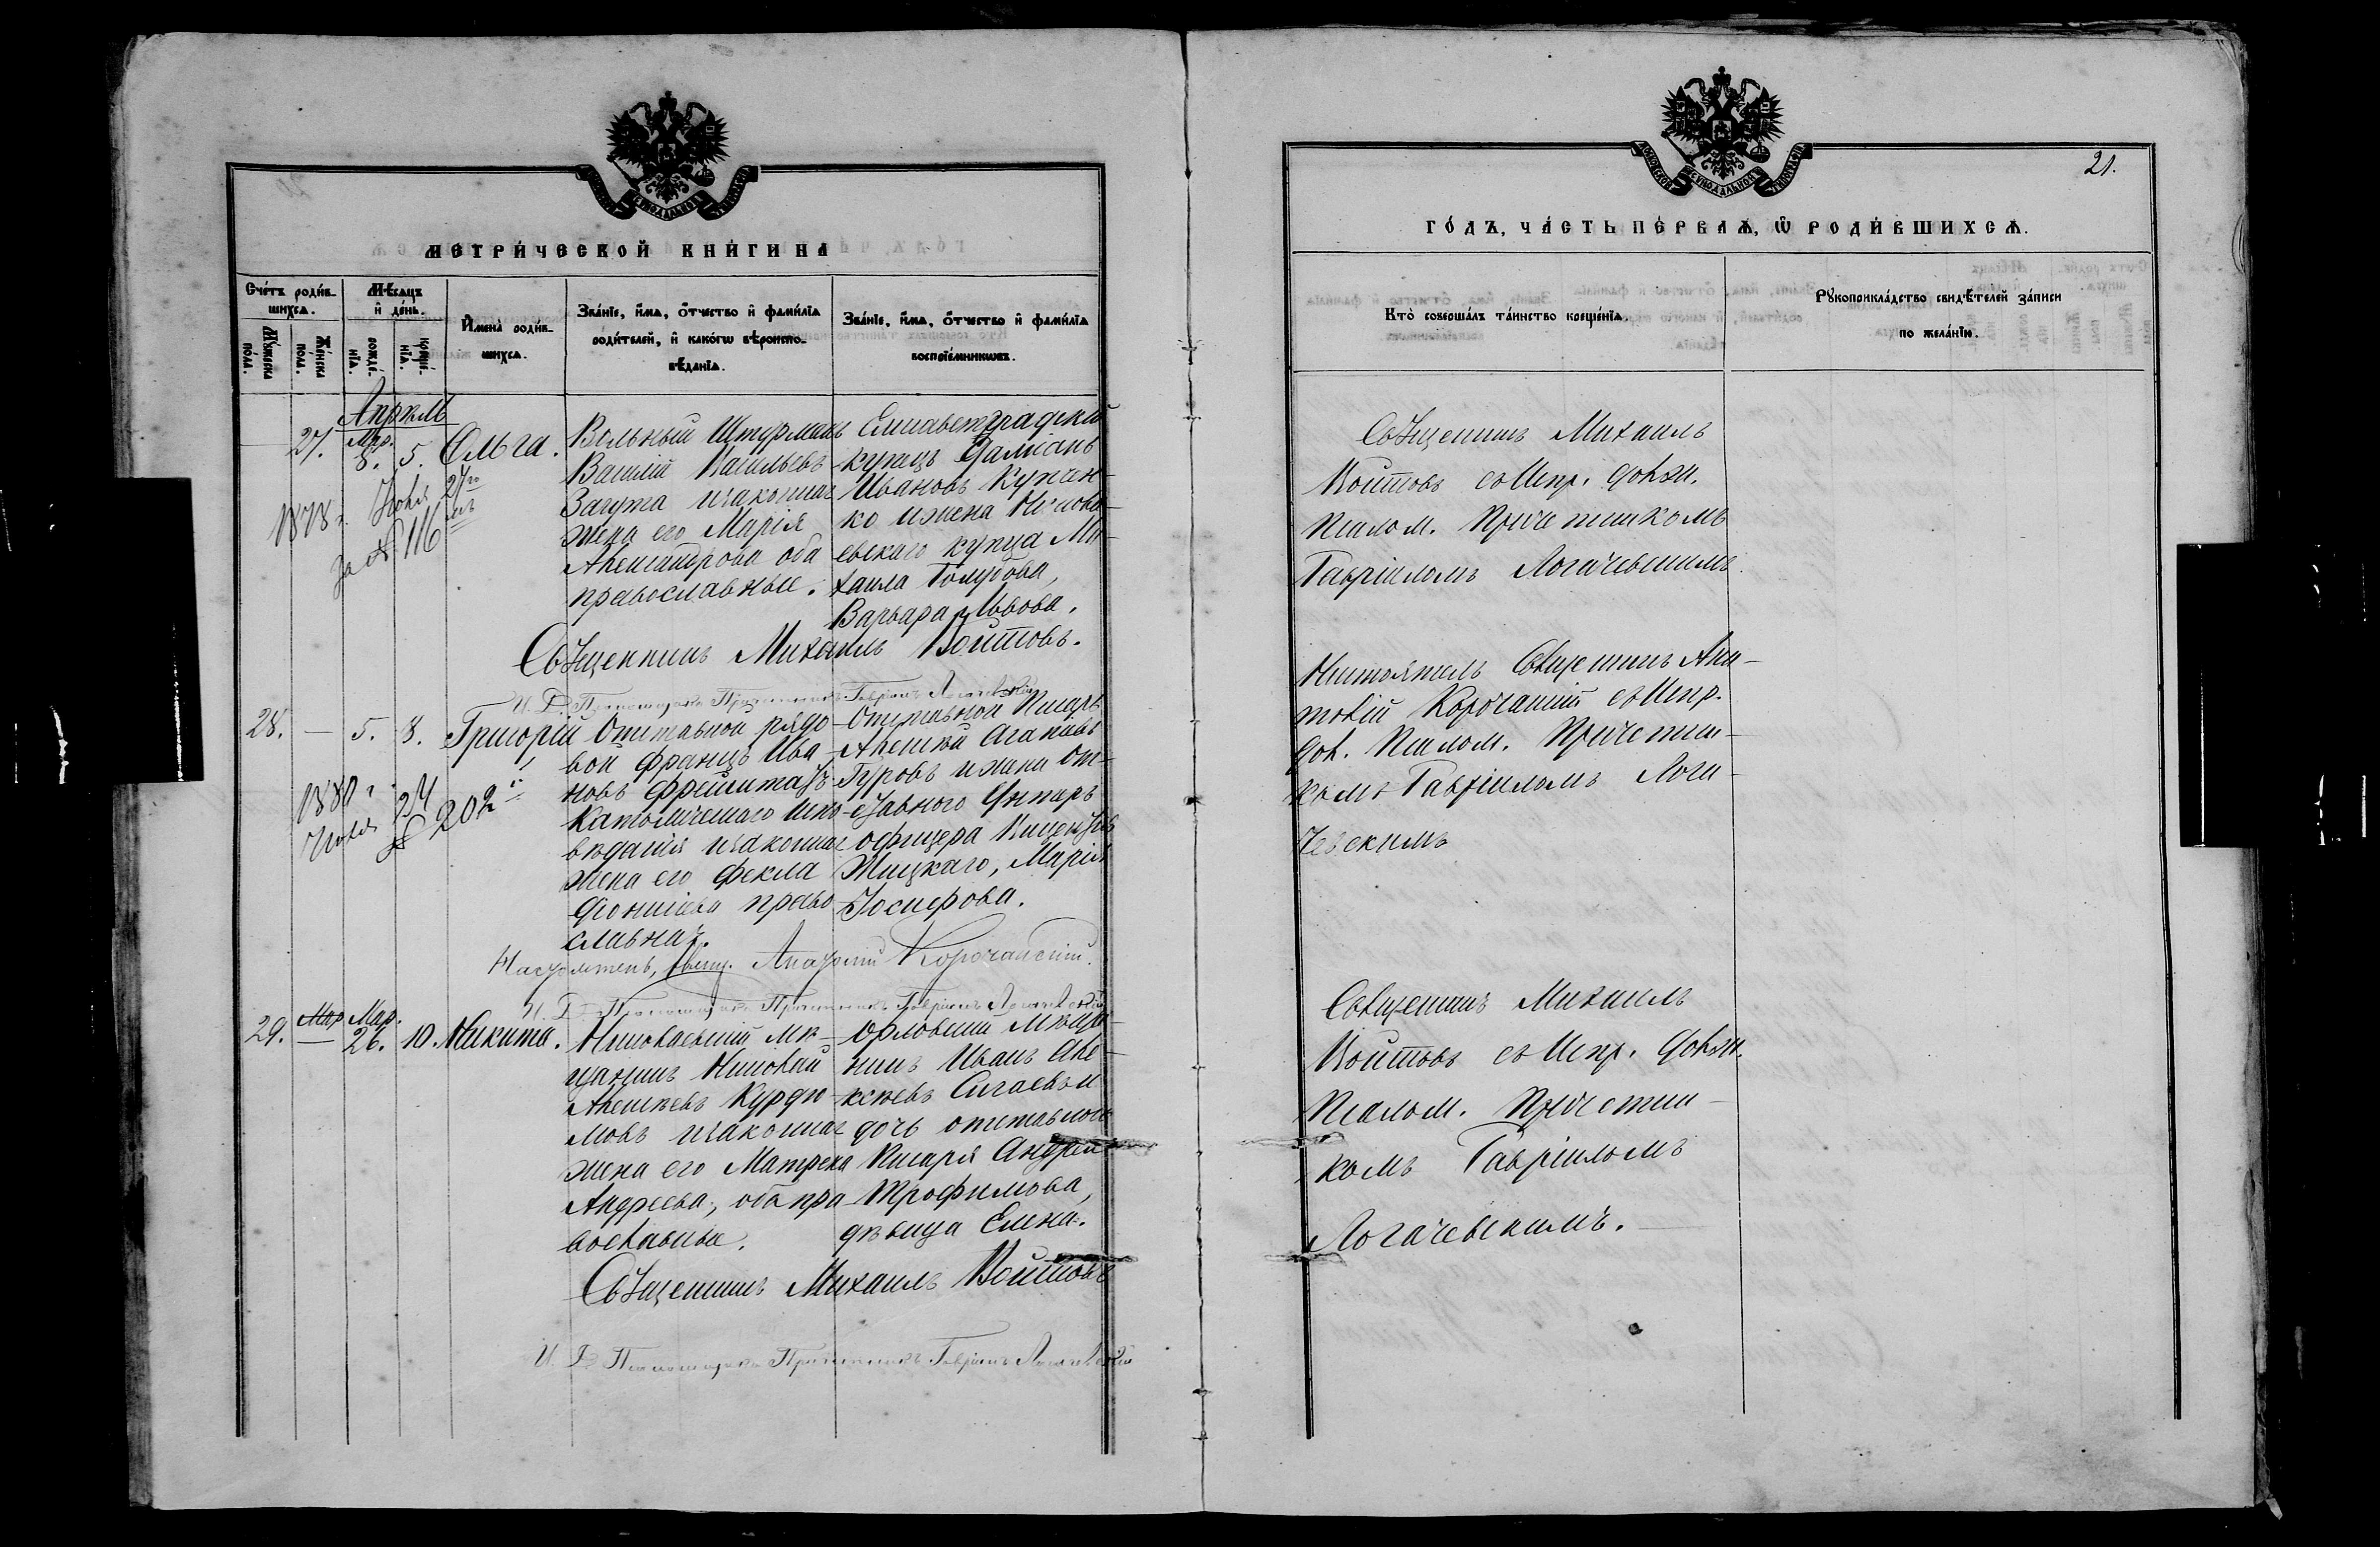 МЕТРИ́ЧЕСКОЙ КНИ́ГИ НА
Сче́тъ роди́в-
шихсѧ.
Мѣ́сѧцъ
и҆ де́нь.
И҆мена̀ роди́в-
шихсѧ.
Зва́нїе, и҆́мѧ, ѻ҆́тчество и҆ фами́лїѧ
роди́телей, и҆ како́гѡ вѣроиспо-
вѣ́данїѧ.
Зва́нїе, и҆́мѧ, ѻ҆́тчество и҆ фами́лїѧ
воспрїе́мникѡвъ.
Мꙋ́жеска по́ла.
Же́нска по́ла.
рожде́-нїѧ.
креще́-нїѧ.
Апрѣль
27.
Мар.
8.
5.
Ольга.
Вольный Штурманъ
Василій Васильевъ
Загута и законная
жена его Марія
Александрова оба
православные.
Елисаветградскій
купецъ Даміанъ
Ивановъ Кужен-
ко и жена Никола-
евскаго купца Ми-
хаила Голубова,
Варвара Львова.
1878 г. Іюля 24го
за № 116
Священникъ Михаилъ Войтовъ.
И. Д. Псаломщика Причетникъ Гавріилъ Логачевскій
28.
—
5.
8.
Григорій
Отставной рядо-
вой Францъ Ива-
новъ Фрейштагъ
Католическаго испо-
вѣданія и законная
жена его Фекла
Діонисіева право-
славная.
Отставной Писарь
Алексѣй Агапіевъ
Гуровъ и жена От-
ставного Унтеръ
офицера Викентія
Жицкаго, Марія
Іосифова.
1880 г.
Іюля 24
№ 202
Настоятель, Свящ. Анатолій Корочанскій.
И. Д. Псаломщика Причетникъ Гавріилъ Логачевскій
29.
Мар
—
Мар.
26.
10.
Никита.
Николаевскій мѣ-
щанинъ Николай
Алексѣевъ Курдю-
мовъ и законная
жена его Матрена
Андреева, оба пра-
вославные.
Орловскій мѣща-
нинъ Иванъ Але-
ксѣевъ Сигаевъ и
дочь отставного
Писаря Андрея
Трофимова,
дѣвица Елена.
Священникъ Михаилъ Войтовъ
И. Д. Псаломщика Причетникъ Гавріилъ Логачевскій
21.
ГО́ДЪ, ЧА́СТЬ ПЕ́РВАѦ, Ѡ҆ РОДИ́ВШИХСѦ.
Кто̀ соверша́лъ та́инство креще́нїѧ.
Рꙋкоприкла́дство свидѣ́телей за́писи
по жела́нїю.
Священникъ Михаилъ
Войтовъ съ Испр. должн.
Псалом. Причетникомъ
Гавріиломъ Логачевскимъ.
Настоятель Священникъ Ана-
толій Корочанскій съ Испр.
дол. Псалом. Причетни-
комъ Гавріиломъ Лога-
чевскимъ
Священникъ Михаилъ
Войтовъ съ Испр. должн.
Псалом. Причетни-
комъ Гавріиломъ
Логачевскимъ.